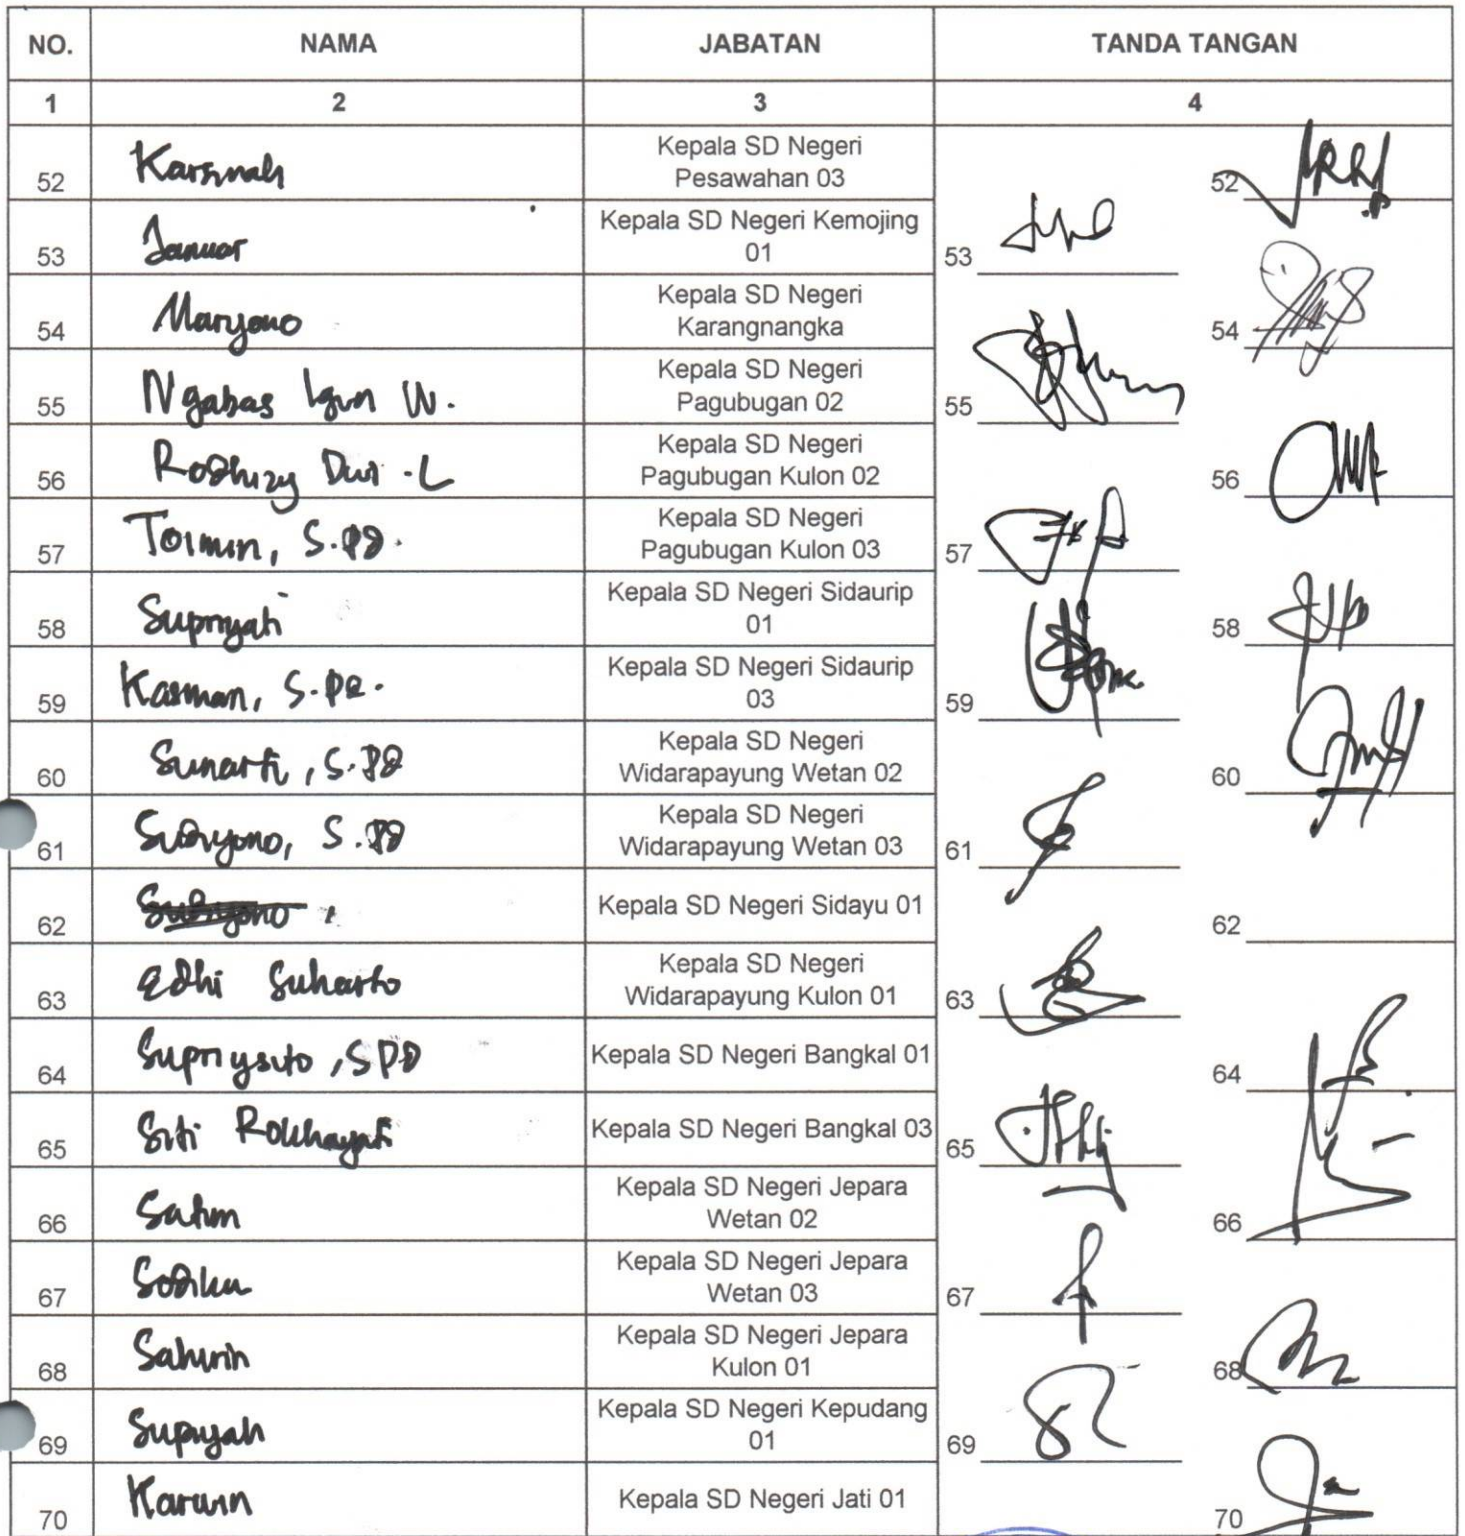 NO. NAMA JABATAN TANDA TANGAN
1 2 3 4
52 Karsinah Kepala SD Negeri Pesawahan 03 52
53 Januar Kepala SD Negeri Kemojing 01 53
54 Maryono Kepala SD Negeri Karangnangka 54
55 Ngabas Igun W. Kepala SD Negeri Pagubugan 02 55
56 Rodhizy Dwi .L Kepala SD Negeri Pagubugan Kulon 02 56
57 Toimin, S.Pd. Kepala SD Negeri Pagubugan Kulon 03 57
58 Supriyati Kepala SD Negeri Sidaurip 01 58
59 Kasman, S.Pd. Kepala SD Negeri Sidaurip 03 59
60 Sunarti, S.Pd Kepala SD Negeri Widarapayung Wetan 02 60
61 Sudiyono, S.Pd Kepala SD Negeri Widarapayung Wetan 03 61
62 Kepala SD Negeri Sidayu 01 62
63 Edhi Suharto Kepala SD Negeri Widarapayung Kulon 01 63
64 Supriysito, SPd Kepala SD Negeri Bangkal 01 64
65 Siti Rokhayati Kepala SD Negeri Bangkal 03 65
66 Satim Kepala SD Negeri Jepara Wetan 02 66
67 Sodiku Kepala SD Negeri Jepara Wetan 03 67
68 Sahirin Kepala SD Negeri Jepara Kulon 01 68
69 Supiyah Kepala SD Negeri Kepudang 01 69
70 Karwin Kepala SD Negeri Jati 01 70